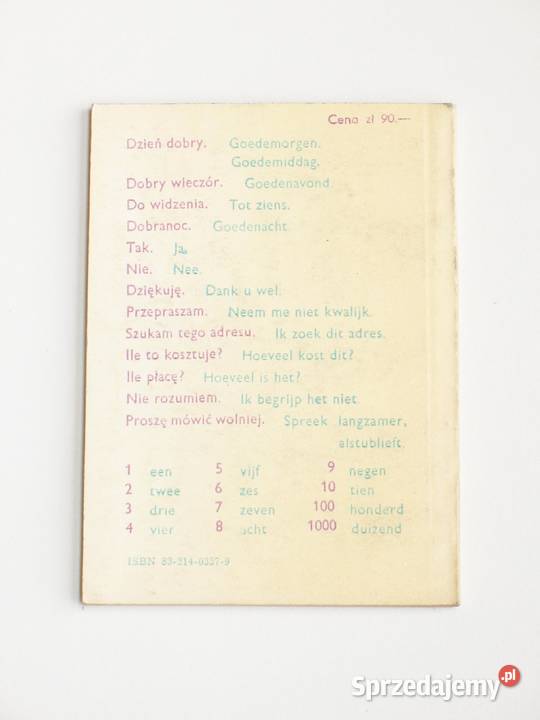 Cena zł 90.—
Dzień dobry. Goedemorgen.
Goedemiddag.
Dobry wieczór. Goedenavond.
Do widzenia. Tot ziens.
Dobranoc. Goedenacht.
Tak. Ja.
Nie. Nee.
Dziękuję. Dank u wel.
Przepraszam. Neem me niet kwalijk.
Szukam tego adresu. Ik zoek dit adres.
Ile to kosztuje? Hoeveel kost dit?
Ile płacę? Hoeveel is het?
Nie rozumiem. Ik begrijp het niet.
Proszę mówić wolniej. Spreek langzamer,
alstublieft.
1 een 5 vijf 9 negen
2 twee 6 zes 10 tien
3 drie 7 zeven 100 honderd
4 vier 8 acht 1000 duizend
ISBN 83-214-0337-9
Sprzedajemy.pl